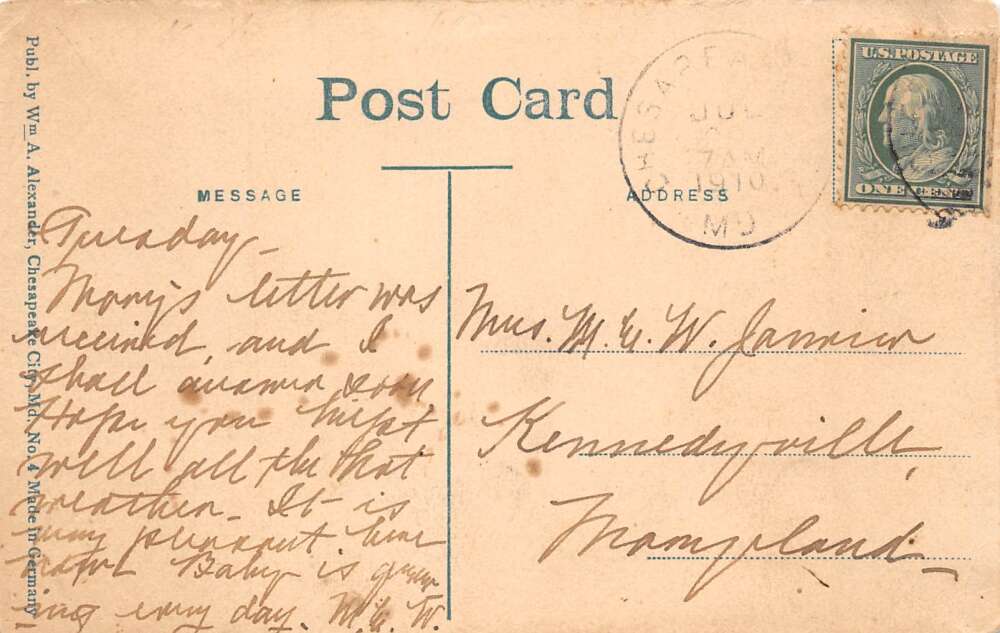 Publ. by Wm A. Alexander, Chesapeake City, Md. No. 4 Made in Germany
Post Card
MESSAGE
ADDRESS
CHESAPEA
JUL
7 AM
1910
MD
U.S. POSTAGE
ONE CENT
Tuesday_
Mary's letter was
received, and I
shall answer soon.
Hope you kept
well all the hot
weather_ It is
very pleasant here
now Baby is grow
ing every day. M. E. W.
Mrs. M. E. W. Janvier
Kennedyville,
Maryland_